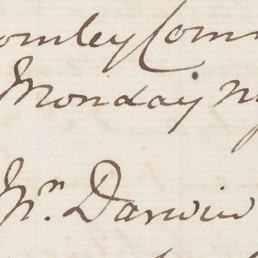 omley Com
Monday n
Mr Darwin